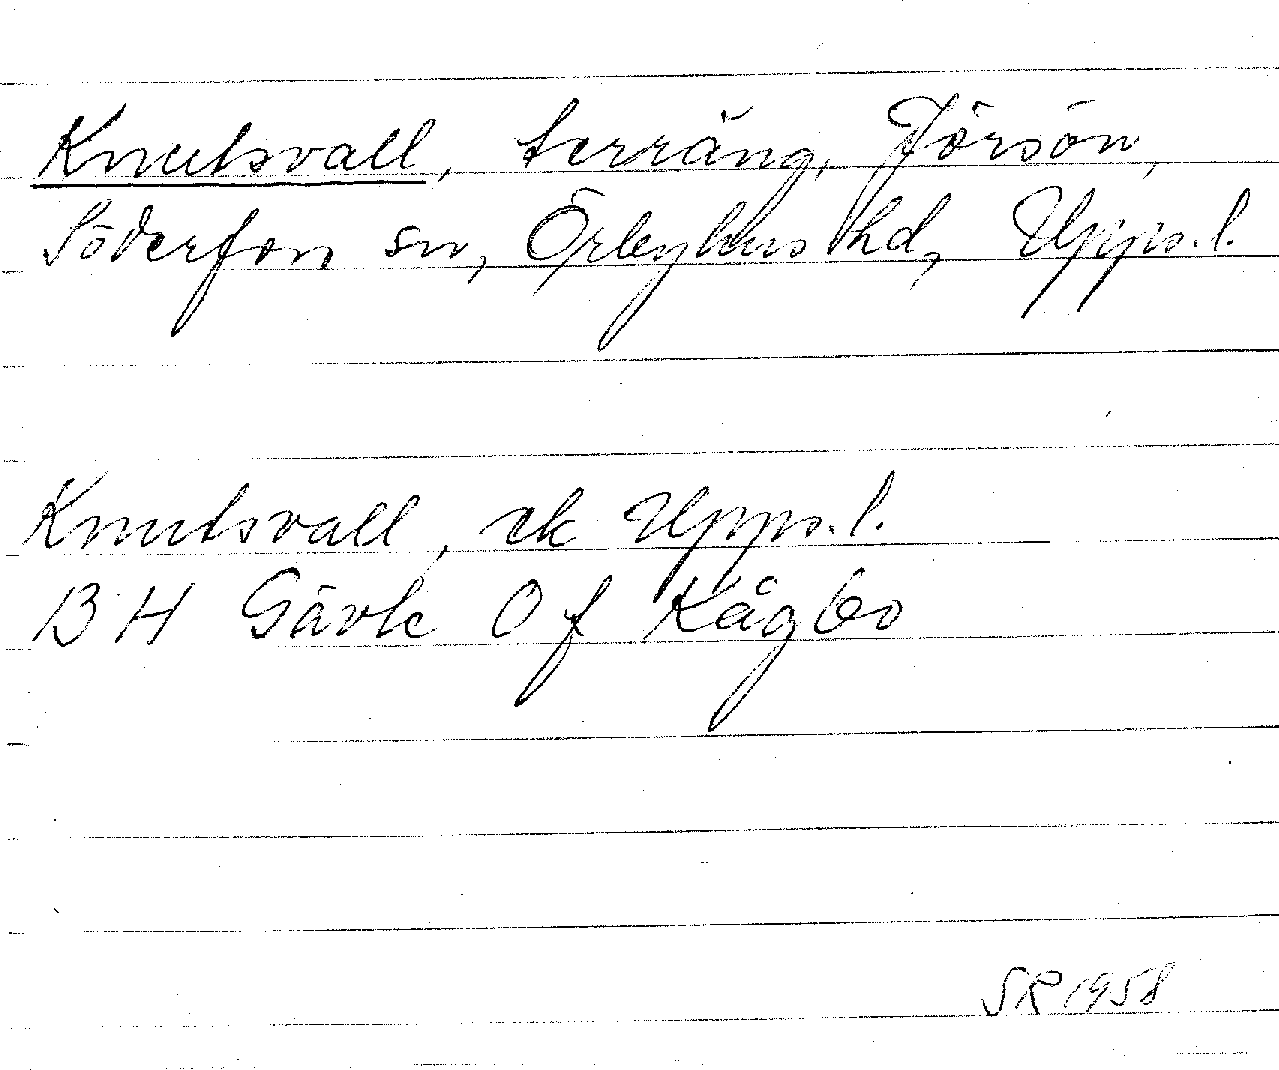 Knutsvall, terräng, Jörsön,
Söderfors sn, Örbyhus hd, Upps. l.
Knutsvall, ek Upps. l.
BH Gävle Of Kågbo
SR 1958